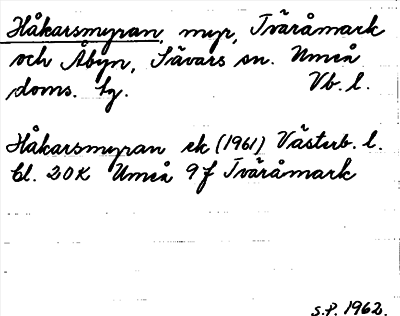 Håkarsmyran, myr, Tväråmark
och Åbyn, Sävars sn. Umeå
doms. tg. Vb. l.
Håkarsmyran ek (1961) Västerb. l.
bl. 20K Umeå 9f Tväråmark
S.P. 1962.